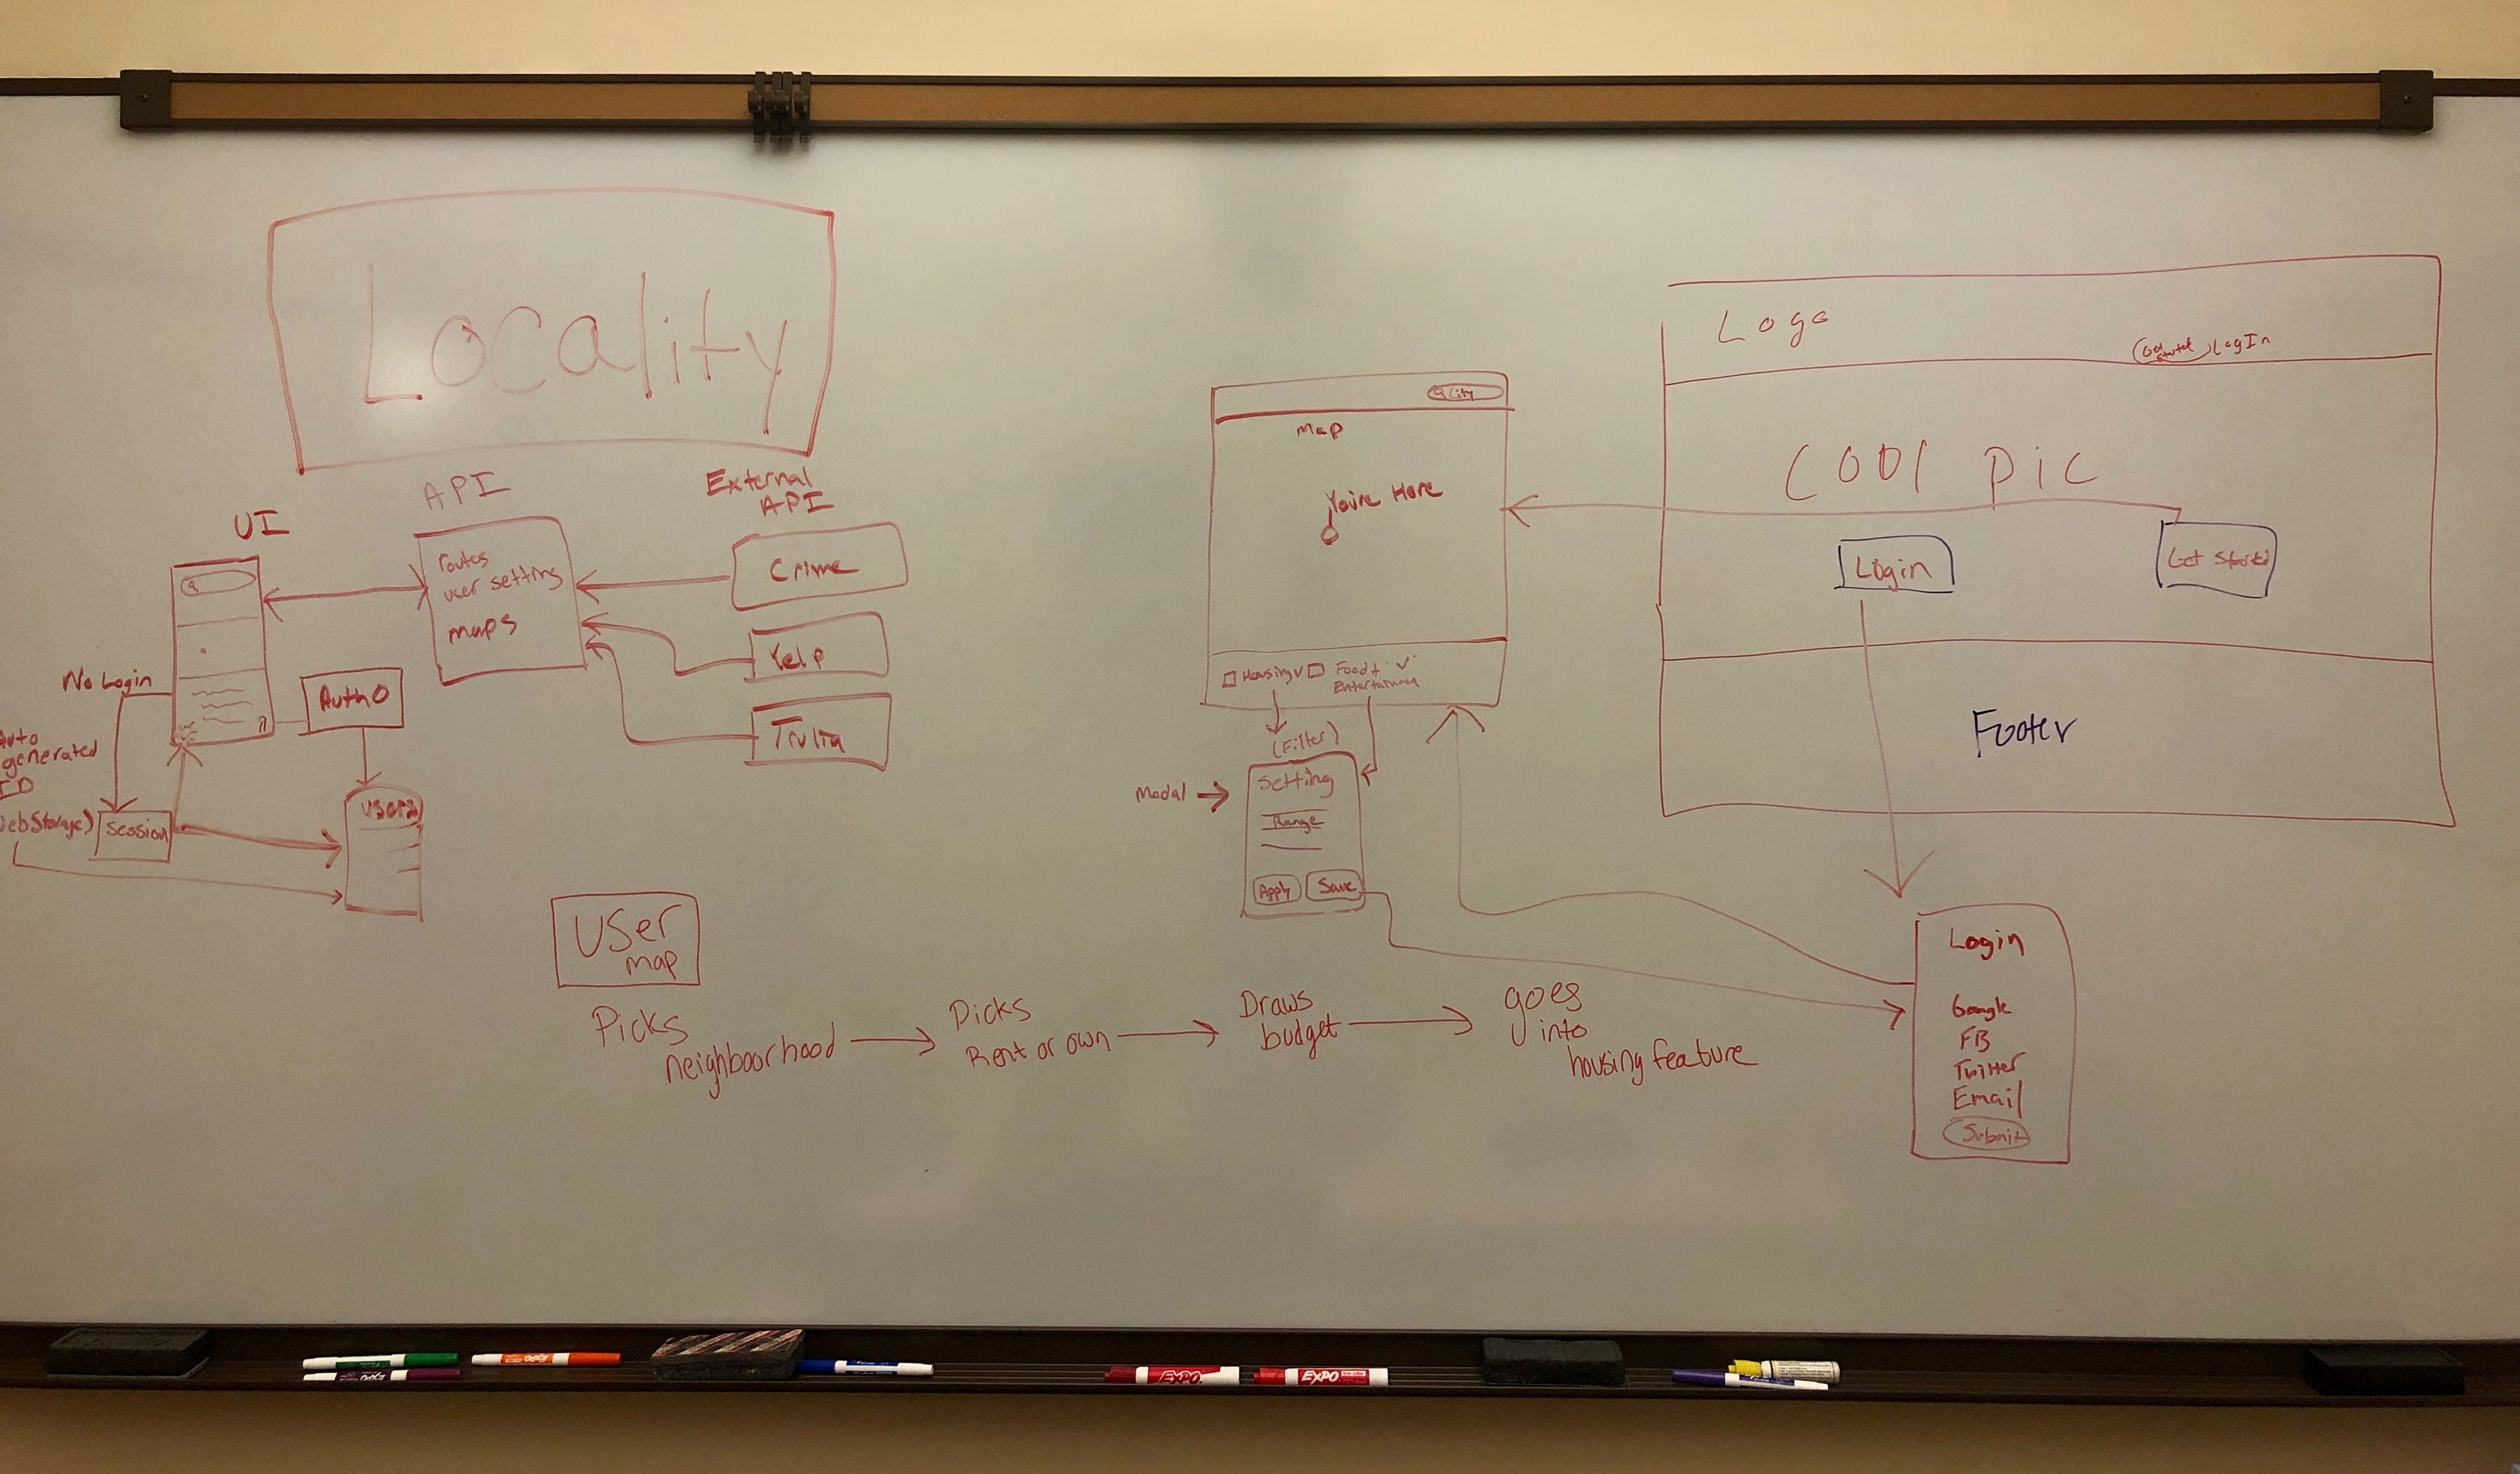 Locality
UI
API
External
API
routes
user setting
maps
Crime
Yelp
Trulia
No Login
Auth0
Auto
generated
ID
WebStorage)
Session
users
User
map
Picks
neighboorhood
Picks
Rent or own
Draws
budget
goes
into
housing feature
City
Map
You're Here
Housing
Food +
Entertainment
(Filter)
Modal
Setting
Range
Apply
Save
Logo
Get
Started
LogIn
COOl pic
Login
Get Started
Footer
Login
Google
FB
Twitter
Email
Submit
EXPO
EXPO
EXPO
EXPO